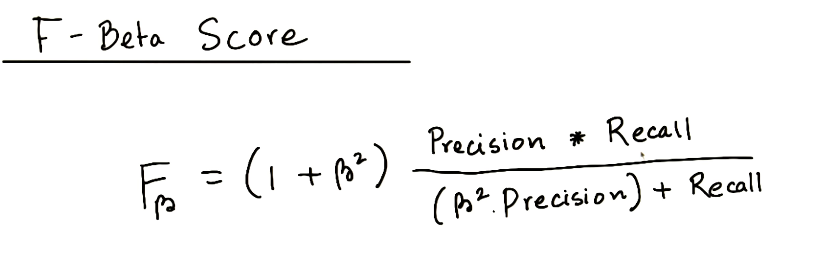 F - Beta Score
Fβ = (1 + β²) Precision * Recall
(β². Precision) + Recall